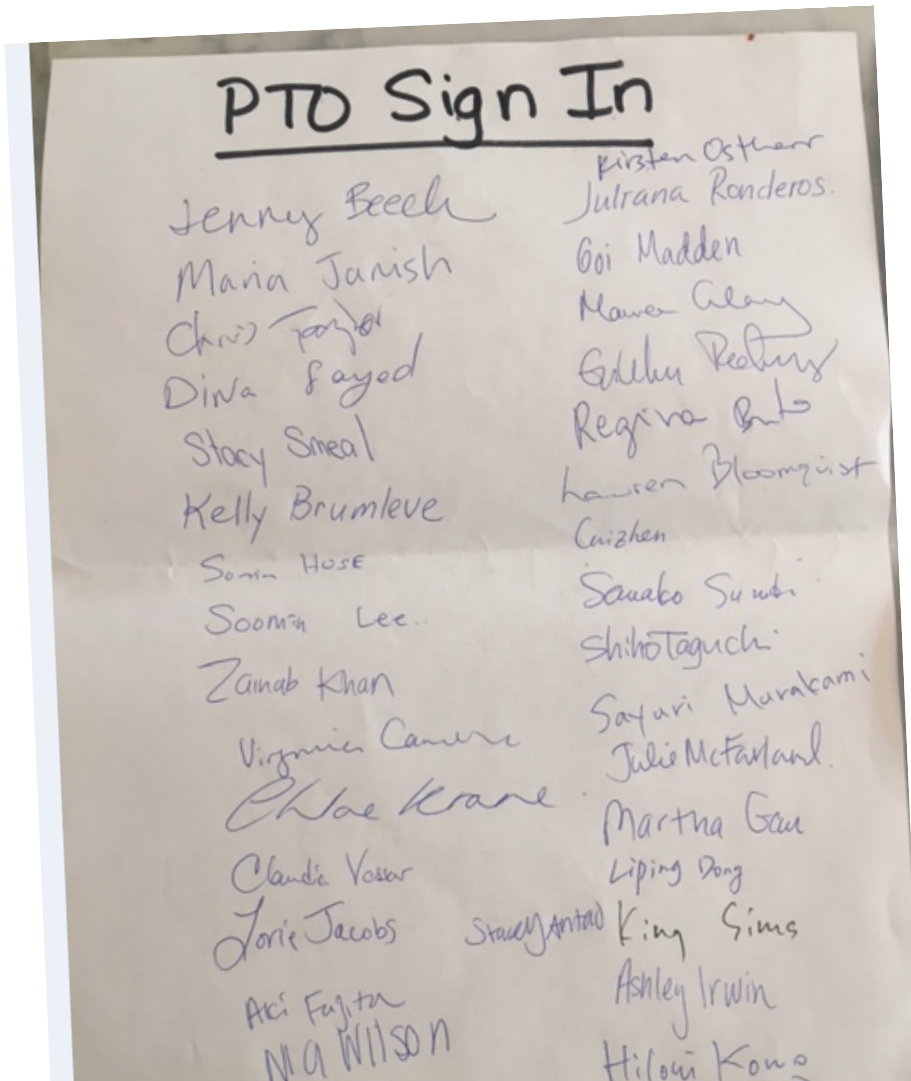 PTO Sign In
Jenny Beech
Maria Janish
Chris Taylor
Dina Sayed
Stacy Smeal
Kelly Brumleve
HOSE
Soomin Lee..
Zainab Khan
Virginia
Chloe Krane
Claudia Vassar
Lorie Jacobs
Stacey Antad
Aki Fujita
Nia Wilson
Kirsten Ostherr
Juliana Ronderos.
Goi Madden
Regina
Lauren Bloomquist
Caizhen
Sanako
Shiho Taguchi
Sayuri Murakami
Julie McFarland.
Martha Gau
Liping Dong
King Sims
Ashley Irwin
Hiromi Kono